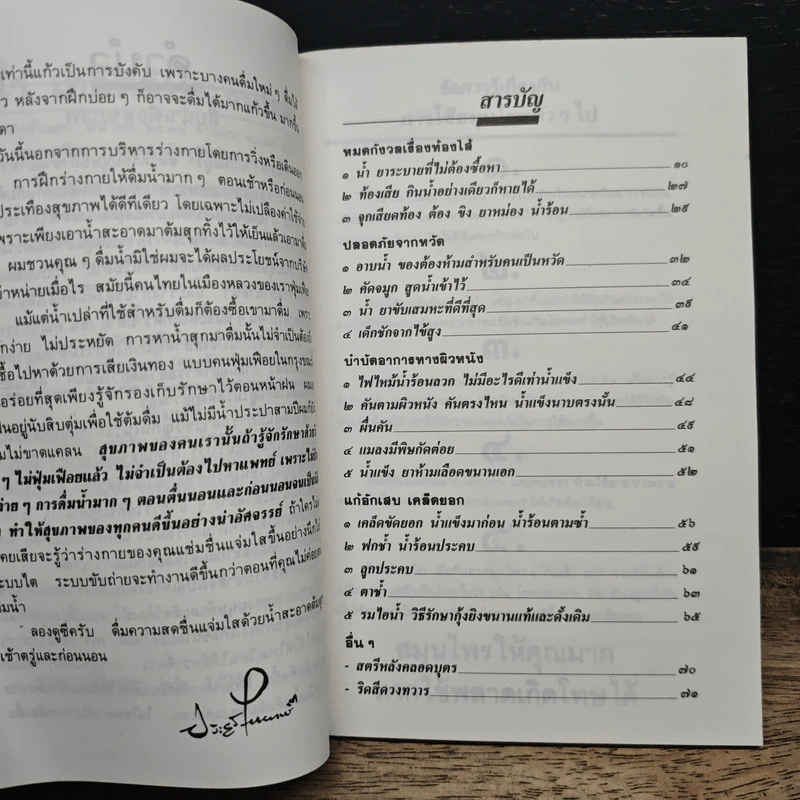 เท่านี้แก้วเป็นการบังคับ เพราะบางคนดื่มใหม่ ๆ ดื่มได้
หลังจากฝึกบ่อย ๆ ก็อาจจะดื่มได้มากแก้วขึ้น มากขึ้น
วันนี้นอกจากการบริหารร่างกายโดยการวิ่งหรือเดินออก
การฝึกร่างกายให้ดื่มน้ำมาก ๆ ตอนเช้าหรือก่อนนอน
ประเทืองสุขภาพได้ดีทีเดียว โดยเฉพาะไม่เปลืองค่าใช้จ่าย
เพราะเพียงเอาน้ำสะอาดมาต้มสุกทิ้งไว้ให้เย็นแล้วเอามาดื่ม
ผมชวนคุณ ๆ ดื่มน้ำมิใช่ผมจะได้ผลประโยชน์จากบริษัท
จำหน่ายเมื่อไร สมัยนี้คนไทยในเมืองหลวงของเราฟุ่มเฟือย
แม้แต่น้ำเปล่าที่ใช้สำหรับดื่มก็ต้องซื้อเขามาดื่ม เพราะ
ง่าย ไม่ประหยัด การหาน้ำสุกมาดื่มนั้นไม่จำเป็นต้อง
ซื้อไปหาด้วยการเสียเงินทอง แบบคนฟุ่มเฟือยในกรุง
อร่อยที่สุดเพียงรู้จักรองเก็บรักษาไว้ตอนหน้าฝน
อยู่นับสิบตุ่มเพื่อใช้ต้มดื่ม แม้ไม่มีน้ำประปาสามปีผมก็ยัง
ไม่ขาดแคลน สุขภาพของคนเรานั้นถ้ารู้จักรักษาด้วย
ๆ ไม่ฟุ่มเฟือยแล้ว ไม่จำเป็นต้องไปหาแพทย์ เพราะ
ง่าย ๆ การดื่มน้ำมาก ๆ ตอนตื่นนอนและก่อนนอนจนเป็น
ทำให้สุขภาพของทุกคนดีขึ้นอย่างน่าอัศจรรย์ ถ้าใคร
เคยเสียจะรู้ว่าร่างกายของคุณแช่มชื่นแจ่มใสขึ้นอย่างนึกไม่
ระบบไต ระบบขับถ่ายจะทำงานดีขึ้นกว่าตอนที่คุณไม่ค่อย
ดื่มน้ำ
ลองดูซีครับ ดื่มความสดชื่นแจ่มใสด้วยน้ำสะอาดต้มสุก
เช้าตรู่และก่อนนอน
สารบัญ
หมดกังวลเรื่องท้องไส้
๑ น้ำ ยาระบายที่ไม่ต้องซื้อหา ๑๐
๒ ท้องเสีย กินน้ำอย่างเดียวก็หายได้ ๒๗
๓ จุกเสียดท้อง ต้อง ขิง ยาหม่อง น้ำร้อน ๒๙
ปลอดภัยจากหวัด
๑ อาบน้ำ ของต้องห้ามสำหรับคนเป็นหวัด ๓๒
๒ คัดจมูก สูดน้ำเข้าไว้ ๓๔
๓ น้ำ ยาขับเสมหะที่ดีที่สุด ๓๙
๔ เด็กชักจากไข้สูง ๔๑
บำบัดอาการทางผิวหนัง
๑ ไฟไหม้น้ำร้อนลวก ไม่มีอะไรดีเท่าน้ำแข็ง ๔๔
๒ คันตามผิวหนัง คันตรงไหน น้ำแข็งนาบตรงนั้น ๔๘
๓ ผื่นคัน ๔๙
๔ แมลงมีพิษกัดต่อย ๕๑
๕ น้ำแข็ง ยาห้ามเลือดขนานเอก ๕๒
แก้อักเสบ เคล็ดยอก
๑ เคล็ดขัดยอก น้ำแข็งมาก่อน น้ำร้อนตามซ้ำ ๕๖
๒ ฟกช้ำ น้ำร้อนประคบ ๕๙
๓ ลูกประคบ ๖๑
๔ ตาช้ำ ๖๓
๕ รมไอน้ำ วิธีรักษากุ้งยิงขนานแท้และดั้งเดิม ๖๕
อื่น ๆ
- สตรีหลังคลอดบุตร ๗๐
- ริดสีดวงทวาร ๗๑